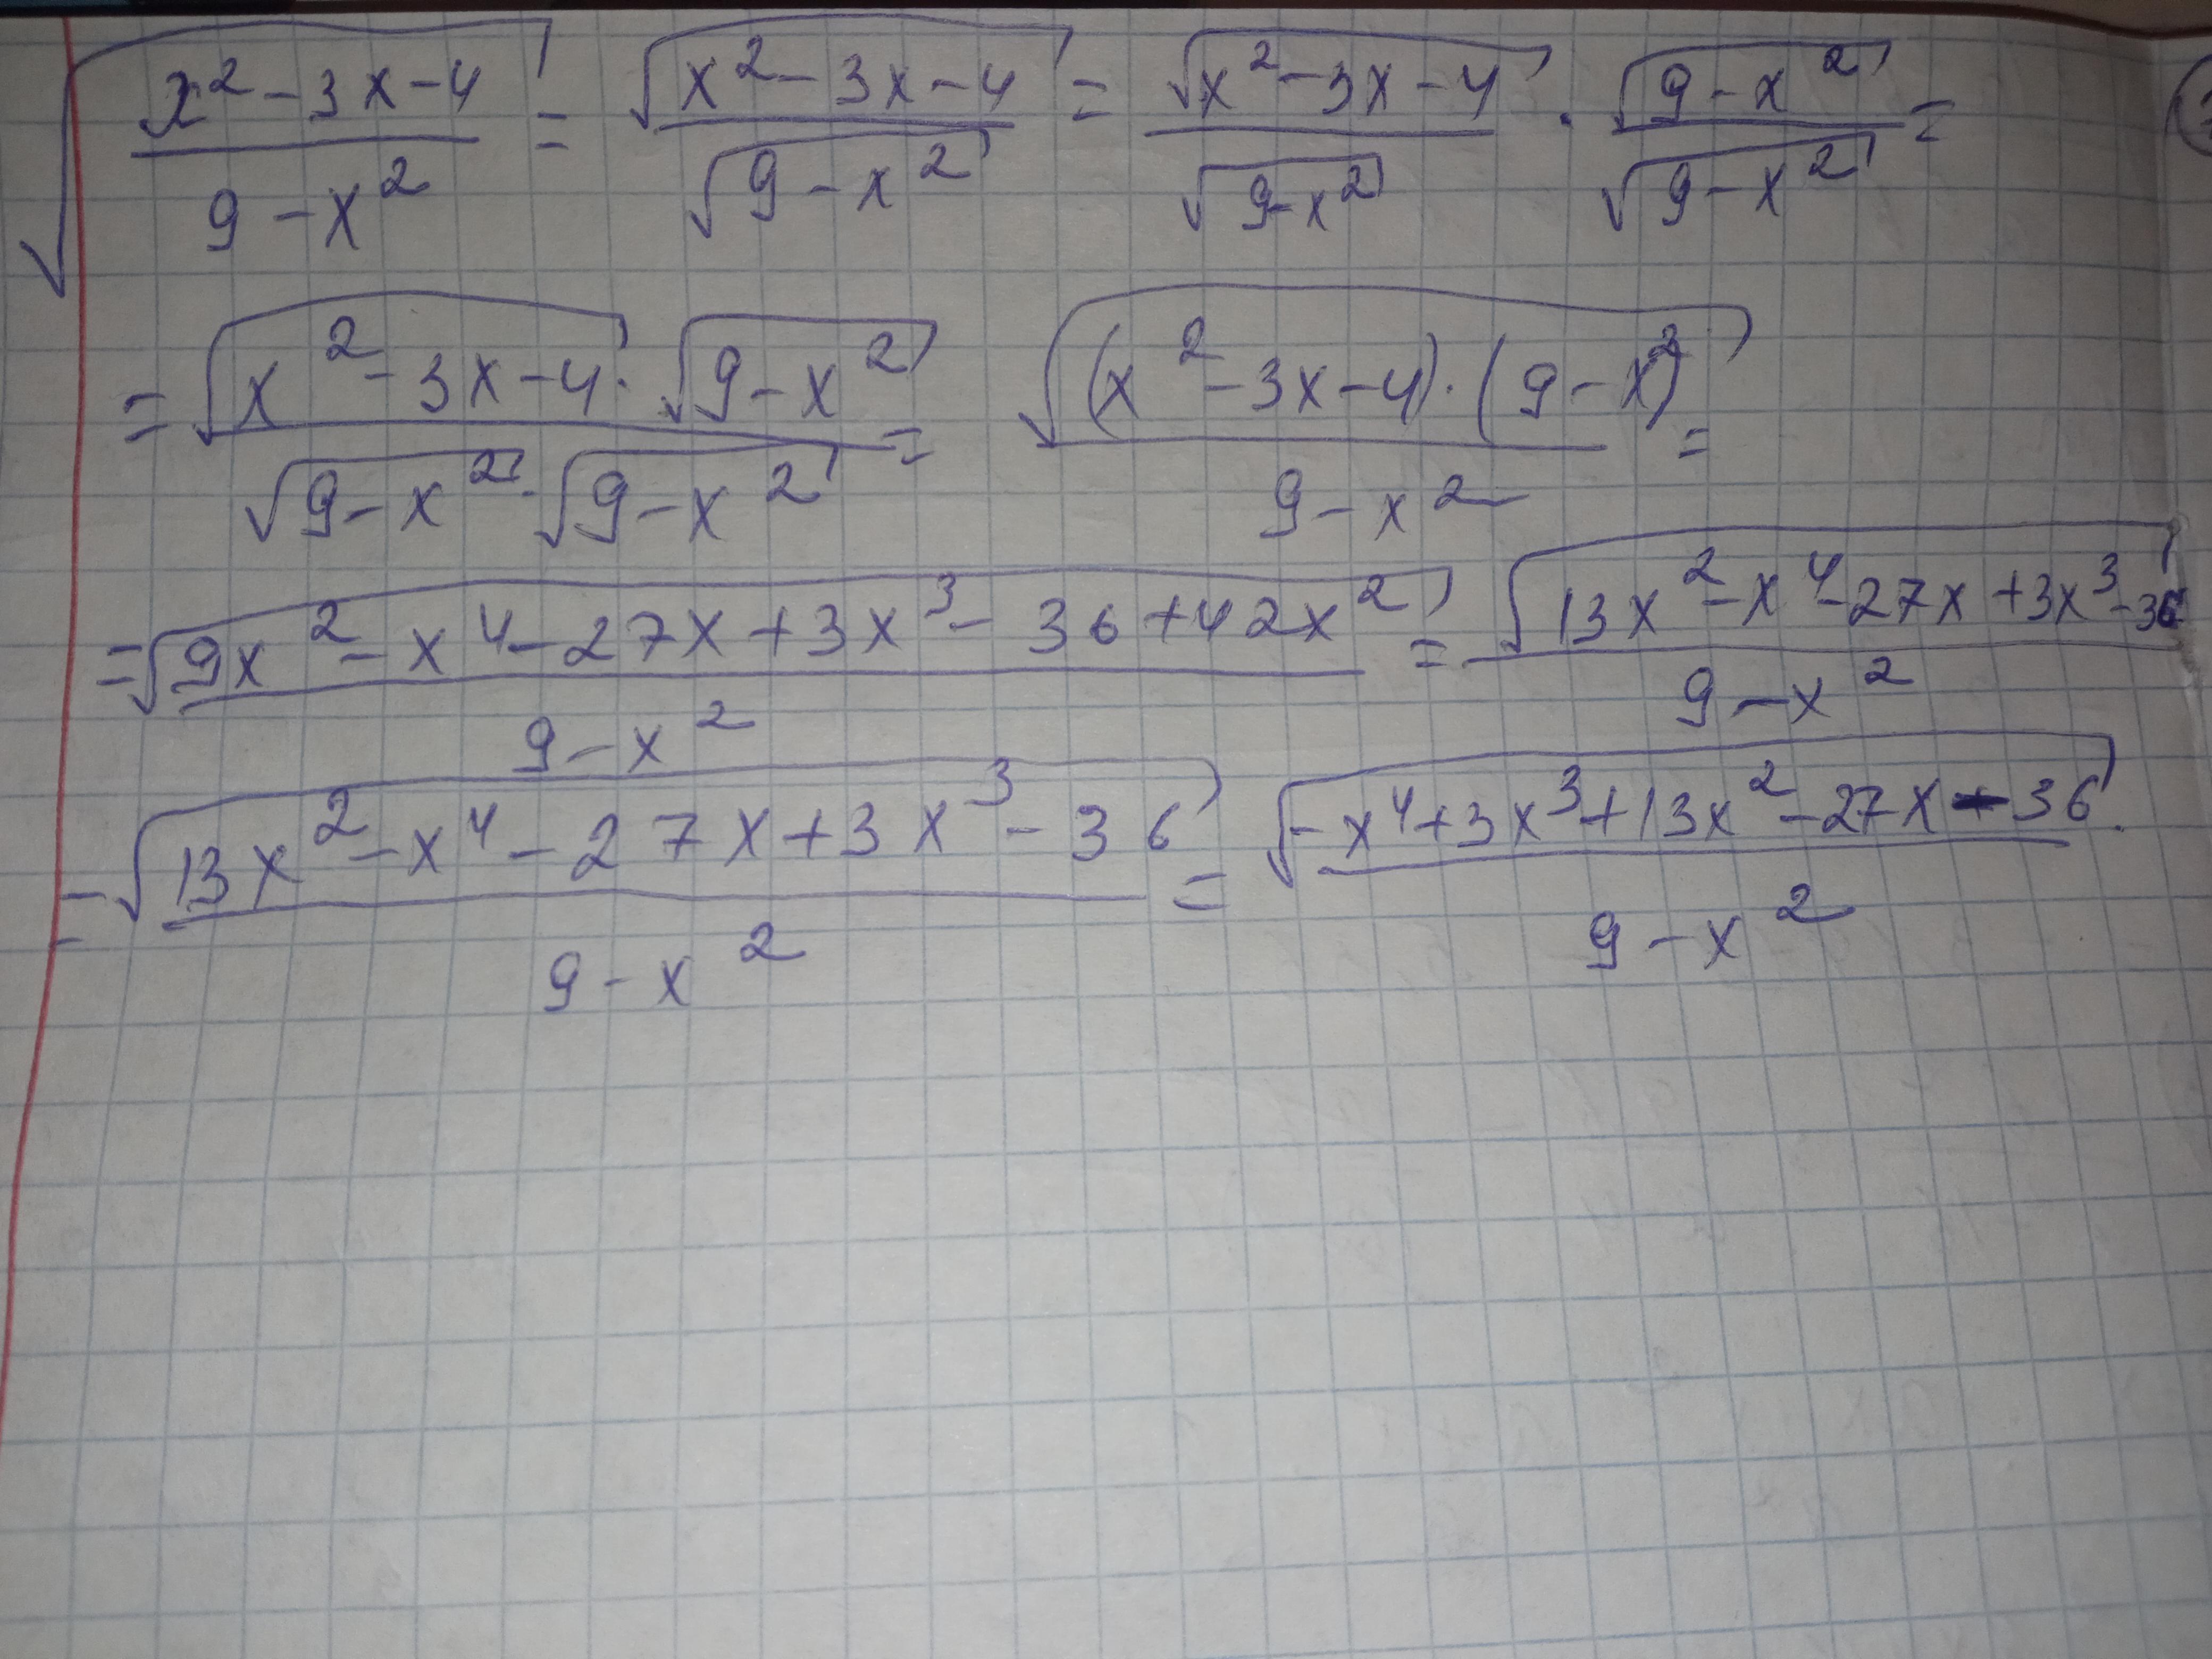 √((x²-3x-4)/(9-x²)) = √(x²-3x-4)/√(9-x²) = √(x²-3x-4)/√(9-x²) · √(9-x²)/√(9-x²) =
= (√(x²-3x-4) · √(9-x²))/(√(9-x²) · √(9-x²)) = √((x²-3x-4)·(9-x)²)/(9-x²) =
= √(9x²-x⁴-27x+3x³-36+42x²)/(9-x²) = √(13x²-x⁴-27x+3x³-36)/(9-x²)
= √(13x²-x⁴-27x+3x³-36)/(9-x²) = √(-x⁴+3x³+13x²-27x-36)/(9-x²).